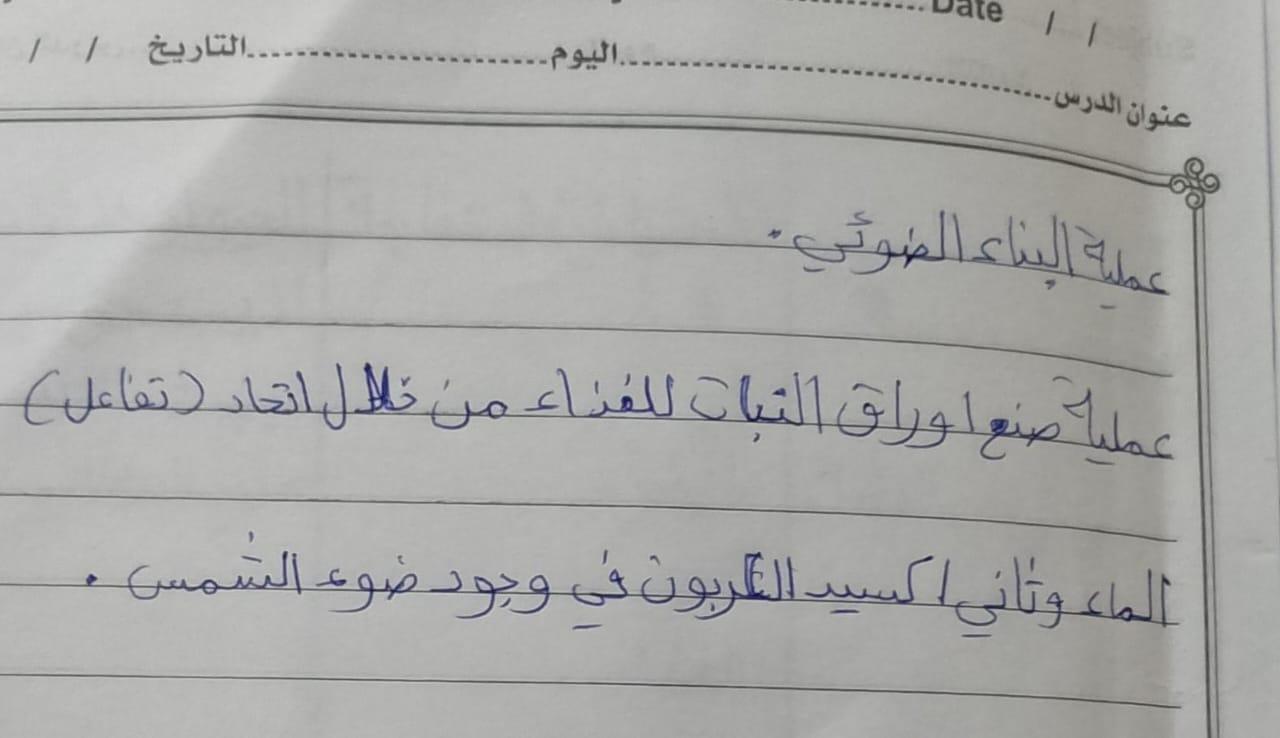 Date / /
عنوان الدرس اليوم التاريخ / /
عملية البناء الضوئي .
عملية صنع اوراق النبات للغذاء من خلال اتحاد (تفاعل)
الماء وثاني اكسيد الكربون في وجود ضوء الشمس .